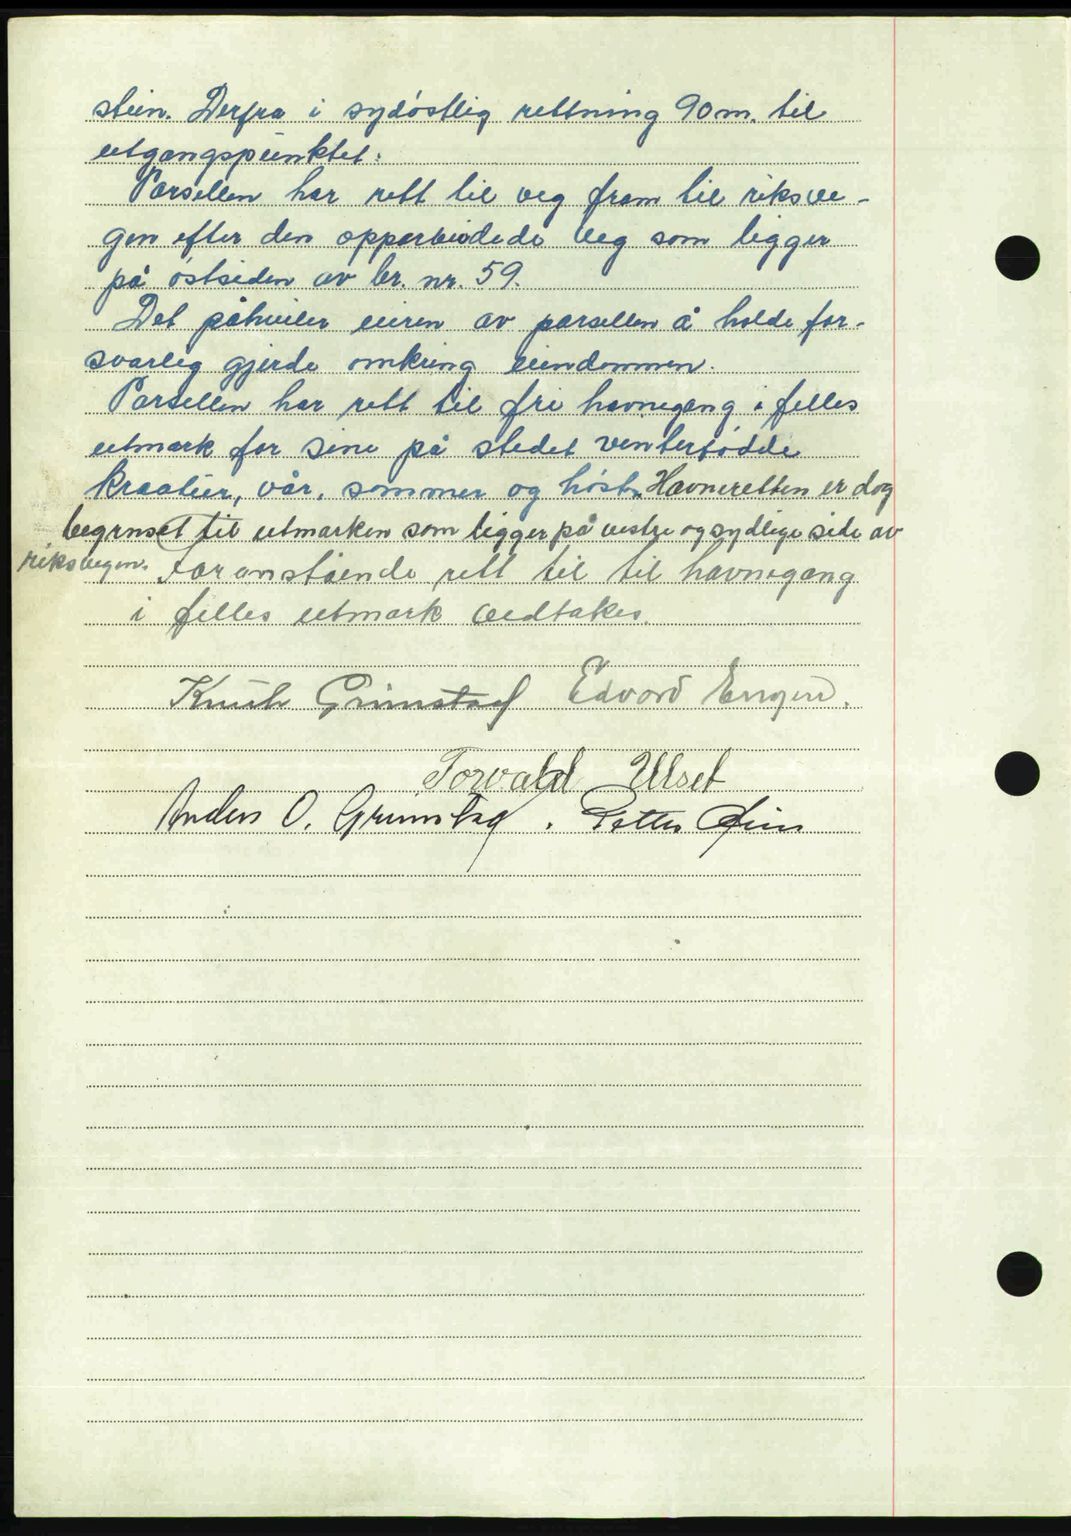 stein. Derfra i sydøstlig rettning 90 m. til
utgangspunktet.
Parsellen har rett til veg fram til riksve-
gen efter den opparbeidede veg som ligger
på østsiden av br. nr. 59.
Det påhviler eieren av parsellen å holde for-
svarlig gjerde omkring eiendommen.
Parsellen har rett til fri havnegang i felles
utmark for sine på stedet vinterfødde
kreatur, vår, sommer og høst. Havneretten er dog
begrnset til utmarken som ligger på vestre og sydlige side av
riksvegen. Foranstående rett til til havnegang
i felles utmark vedtakes.
Knut Grimstad Edvard Engen.
Torvald Ulset
Anders O. Grimstad. Petter